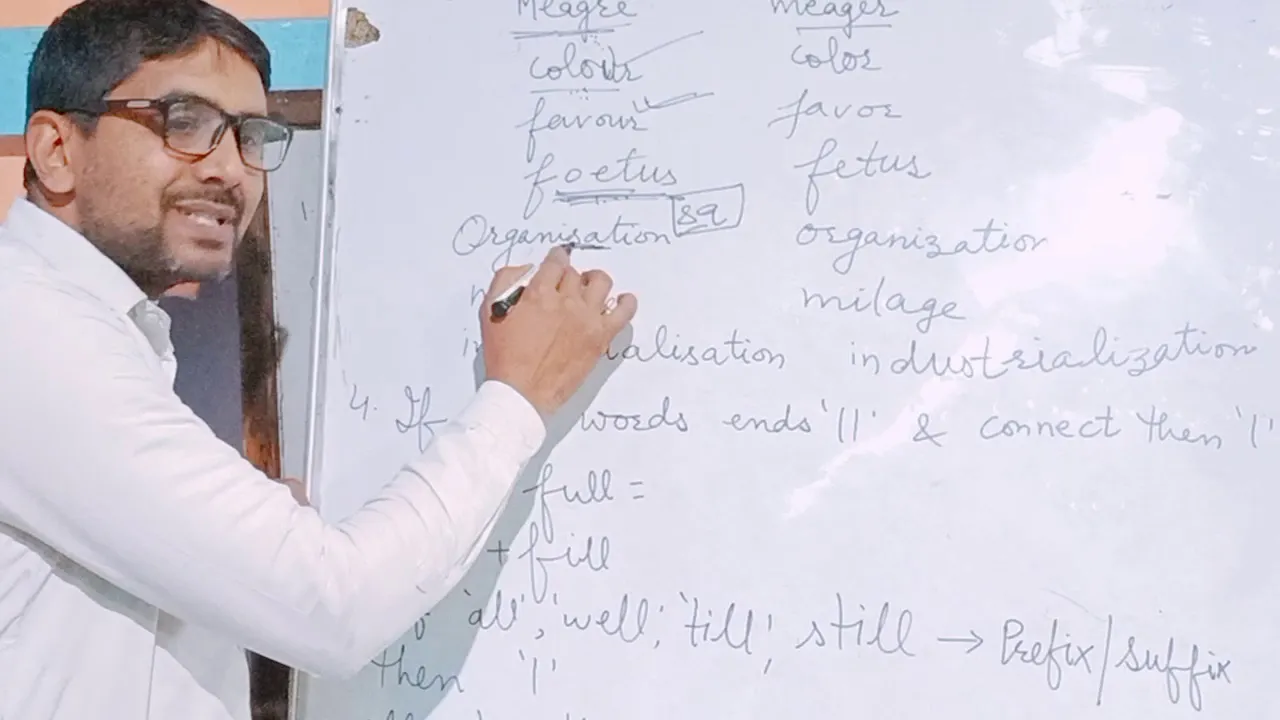 Meagre meager
colour color
favour favor
foetus fetus
Organisation sa organization
milage
ialisation industrialization
4. If words ends 'll' & connect then 'l'
full =
+ fill
'all', 'well', 'till', still → Prefix/suffix
then 'l'